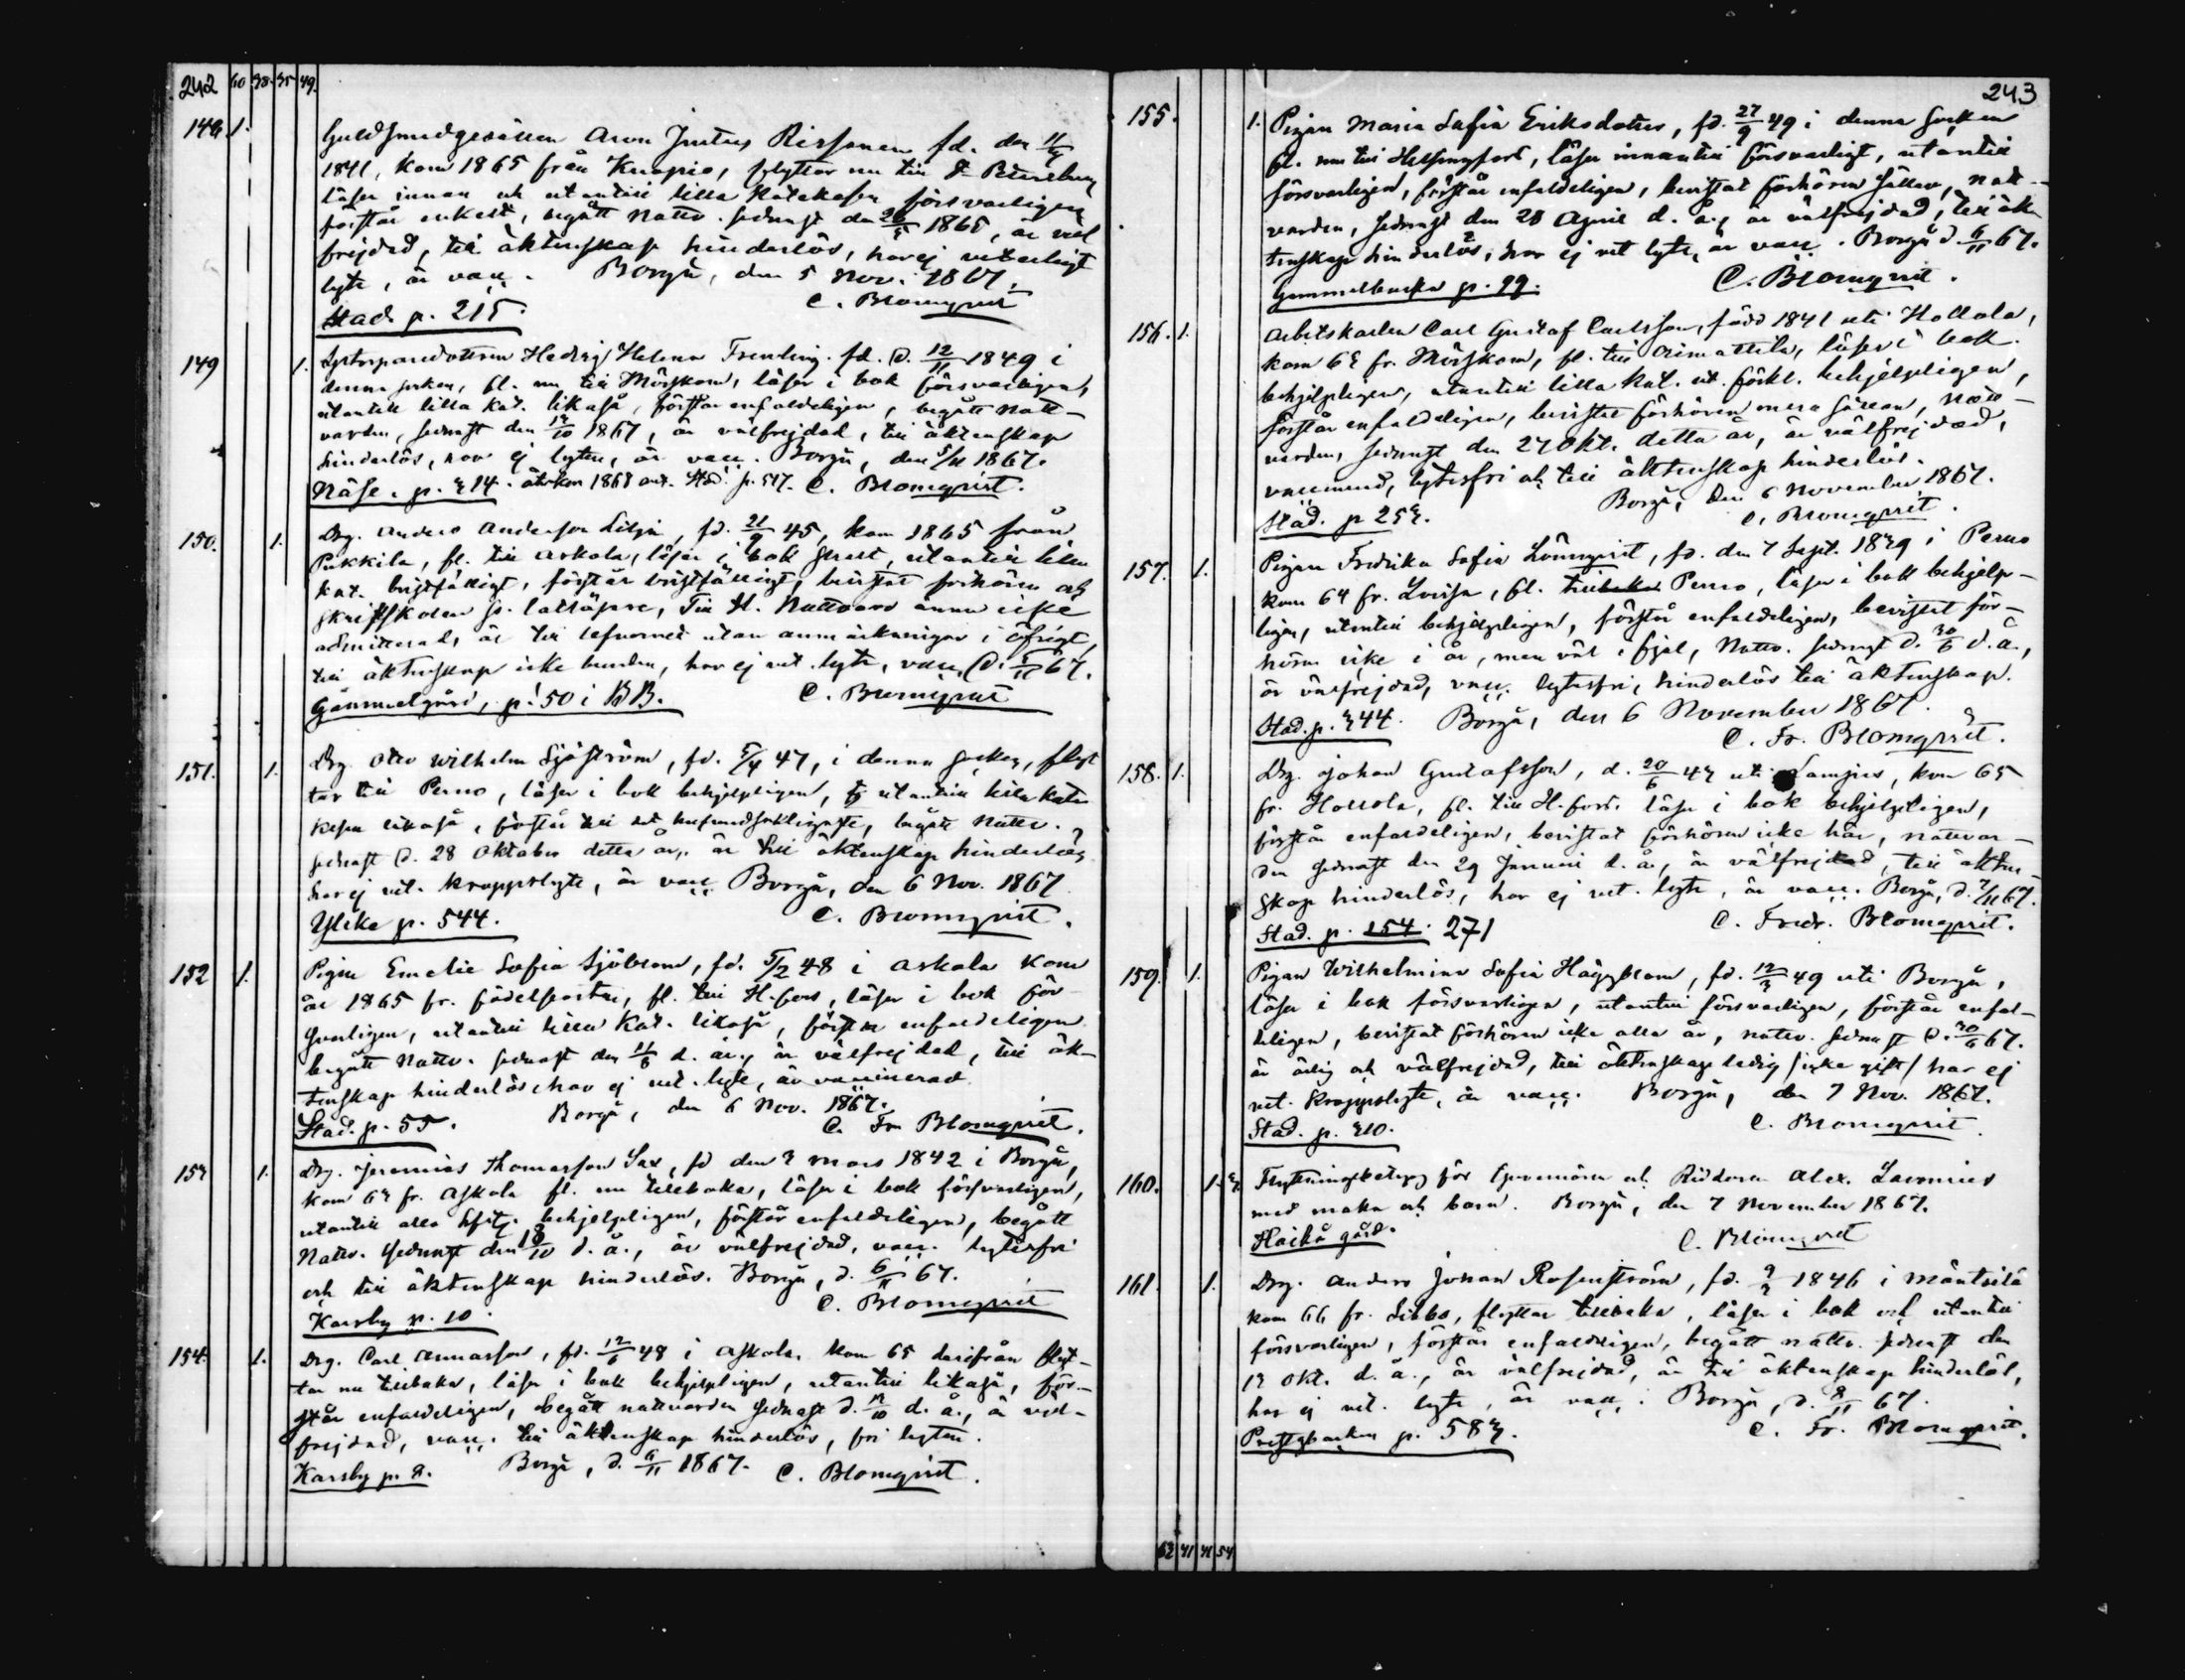 242 60 38 35 49.
148. 1. Guldsmedgesällen Aron Justus Rissanen fd. den 11/4
1841, kom 1865 från Kuopio, flyttar nu till St Petersburg
läser innan och utantill lilla Katekesen försvarligen
förstår enkelt, begått nattv. sednast den 1865, är väl
frejdad, till äktenskap hinderlös, har ej veterligt
lyte, är vacc. Borgå, den 5 Nov. 1867.
C. Blomqvist
Stad. p. 215.
149 1. Hedvig Helena Fremling. fd. d. 12/11 1849 i
denna socken, fl. nu till Mörskom, läser i bok försvarligen,
utantill lilla Kat. likaså, förstår enfaldeligen, begått natt-
varden, sednast den 1867, är välfrejdad, till äktenskap
hinderlös, har ej lyten, är vacc. Borgå, den 5/11 1867.
Näse. p. 314. återkom 1868 ant. Stad. p. 517. C. Blomqvist.
150. 1. Drg. Anders Andersson Lilja, fd. 21/9 45, kom 1865 från
Pukkila, fl. till Askola, läser i bok, utantill lilla
kat. bristfälligt, förstår bristfälligt, bevistat förhören och
skriftskolan, till H. Nattvard ännu icke
admitterad, är till lefvernet utan anmärkningar i öfrigt,
till äktenskap icke bunden, har ej vet. lyte, vacc. d. 5/11 67.
Gammelgård, p. 50 i BB. C. Blomqvist
151. 1. Drg. Otto Wilhelm Sjöström, fd. 5/4 47, i denna socken, flyt
tar till Perno, läser i bok behjelpligen, utantill lilla kate
kesen likaså, förstår till det hufvudsakligaste, begått nattv.
sednast d. 28 Oktober detta år, är till äktenskap hinderlös,
har ej vet. kroppslyte, är vacc. Borgå, den 6 Nov. 1867
Ylike p. 544. C. Blomqvist.
152 1. Pigan Emelie Sofia Sjöblom, fd. 5/2 48 i Askola kom
år 1865 fr. födelseorten, fl. till H.fors, läser i bok för-
svarligen, utantill lilla Kat. likaså, förstår enfaldeligen
begått nattv. sednast den 11/6 d. år, är välfrejdad, till äk-
tenskap hinderlös, har ej vet. lyte, är vaccinerad
Stad. p. 55. Borgå, den 6 Nov. 1867.
C. Fr. Blomqvist.
153 1. Drg. Jeremias Thomasson Sax, fd den 3 mars 1842 i Borgå,
kom 63 fr. Askola fl. nu tillbaka, läser i bok försvarligen,
utantill alla behjelpligen, förstår enfaldeligen, begått
Nattv. sednast den 13/10 d. å., är välfrejdad, vacc. lytesfri
och till äktenskap hinderlös. Borgå, d. 6/11 67.
Karsby p. 10. C. Blomqvist
154. 1. Drg. Carl Annasson, fd. 12/6 48 i Askola. kom 65 därifrån flyt-
tar nu tillbaka, läser i bok behjelpligen, utantill likaså, för-
står enfaldeligen, begått nattvarden sednast d. d. å., är väl-
frejdad, vacc. till äktenskap hinderlös, fri lyten.
Karsby p. 8. Borgå, d. 6/11 1867. C. Blomqvist.
243
155. 1. Pigan Maria Sofia Eriksdotter, fd. 27/9 49 i denna socken
fl. nu till Helsingfors, läser innantill försvarligt, utantill
försvarligen, förstår enfaldeligen, bevistat förhören sällan, natt-
varden, sednast den 28 April d. å., är välfrejdad, till äk
tenskap hinderlös, har ej vet lyte, är vacc. Borgå d. 6/11 67.
Gammelbacka p. 99. C. Blomqvist.
156. 1. Arbetskarlen Carl Gustaf Carlsson, född 1841 uti Hollola,
kom 63 fr. Mörskom, fl. till Orimattila, läser i bok
behjelpligen, utantill lilla Kat. ut. förkl. behjelpligen,
förstår enfaldeligen, bevistat förhören mera sällan, natt-
varden, sednast den 27 Okt. detta år, är välfrejdad,
vaccinerad, lytesfri och till äktenskap hinderlös.
Borgå, den 6 November 1867.
Stad. p 253. C. Blomqvist.
157. 1. Pigan Fredrika Sofia Lönnqvist, fd. den 7 Sept. 1839 i Perno
kom 64 fr. Lovisa, fl. tillbaka Perno, läser i bok behjelp-
ligen, utantill behjelpligen, förstår enfaldeligen, bevistat för-
hören icke i år, men väl i fjol, Nattv. sednast d. 30/6 d. å.,
är välfrejdad, vacc. lytesfri, hinderlös till äktenskap.
Stad. p. 344. Borgå, den 6 November 1867.
C. Fr. Blomqvist.
158. 1. Drg. Johan Gustafsson, d. 20/6 43 uti Lampis, kom 65
fr. Hollola, fl. till H.fors. läser i bok behjelpligen,
förstår enfaldeligen, bevistat förhören icke här, nattvar-
den sednast den 29 Januari d. å., är välfrejdad, till äkten-
skap hinderlös, har ej vet. lyte, är vacc. Borgå, d. 7/11 67.
Stad. p. 154. 271 C. Fredr. Blomqvist.
159. 1. Pigan Wilhelmina Sofia Häggblom, fd. 12/3 49 uti Borgå,
läser i bok försvarligen, utantill försvarligen, förstår enfal-
deligen, bevistat förhören icke alla år, nattv. sednast d. 30/6 67.
är ärlig och välfrejdad, till äktenskap ledig (icke gift) har ej
vet. kroppslyte, är vacc. Borgå, den 7 Nov. 1867.
Stad. p. 310. C. Blomqvist.
160. 1. 3 Flyttningsbetyg för Guvernören och Riddaren Alex. Lavonius
med maka och barn. Borgå, den 7 November 1867.
Haikå gård. C. Blomqvist
161. 1. Drg. Anders Johan Rosenström, fd. 1846 i Mäntsälä
kom 66 fr. Sibbo, flyttar tillbaka, läser i bok och utantill
försvarligen, förstår enfaldeligen, begått nattv. sednast den
13 Okt. d. å., är välfrejdad, är till äktenskap hinderlös,
har ej vet. lyte, är vacc. Borgå, d. 8/11 67.
Prestgbacken p. 583. C. Fr. Blomqvist.
62 41 41 54